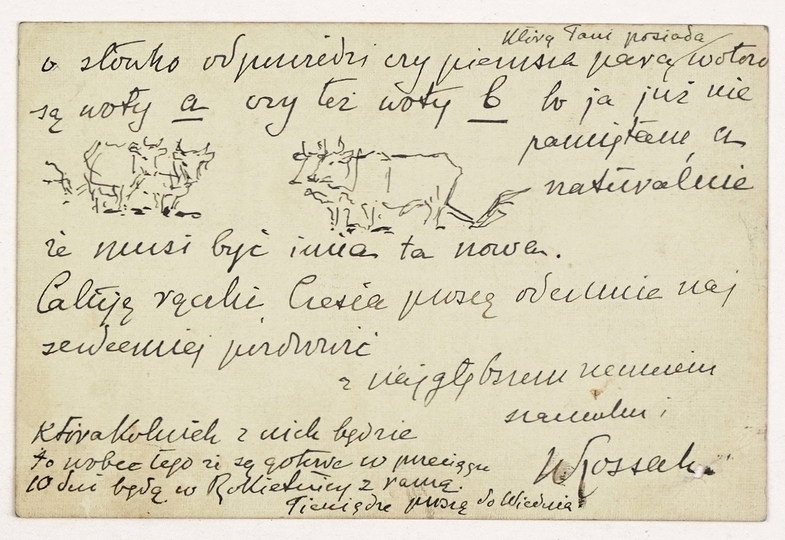 którą Pani posiada
o słówko odpowiedzi czy pierwsza para wołów
są woły a czy też woły b bo ja już nie
pamiętam, a
naturalnie
że musi być inna ta nowa.
Całuję rączki, Czesia proszę odemnie naj
serdeczniej pozdrowić
z najgłębszem
szacunkiem
WKossak
Którakolwiek z nich będzie
to wobec tego że są gotowe w przeciągu
10 dni będą w Rokietnicy z ramą.
Pieniądze proszę do Wiednia